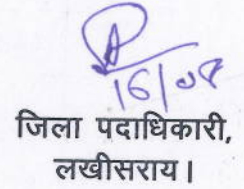 16/08
जिला पदाधिकारी,
लखीसराय।